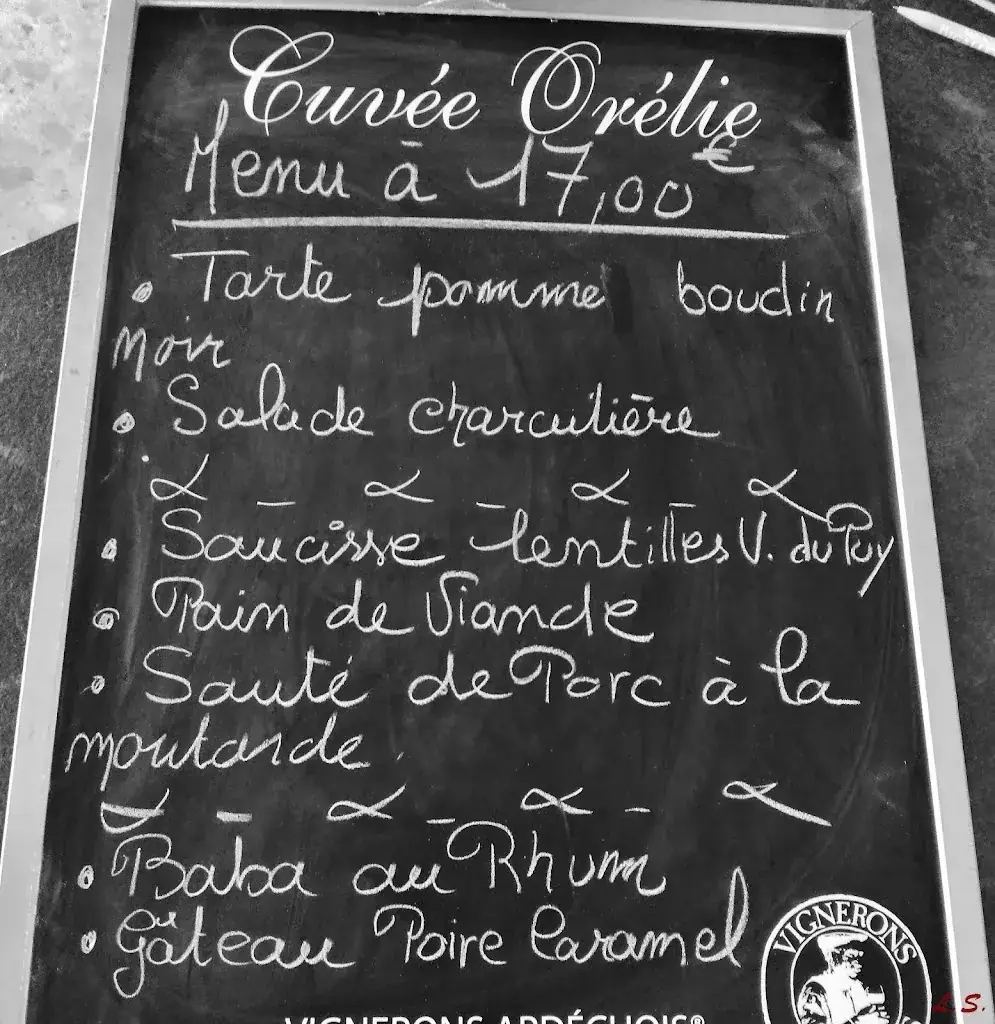 Cuvée Orélie
Menu à 17,00 €
• Tarte pomme boudin
noir
• Salade charcutière
• Saucisse lentilles V. du Puy
• Pain de Viande
• Sauté de Porc à la
moutarde.
• Baba au Rhum
ou
• Gâteau Poire Caramel
VIGNERONS
VIGNERONS ARDÉCHOIS®
L.S.